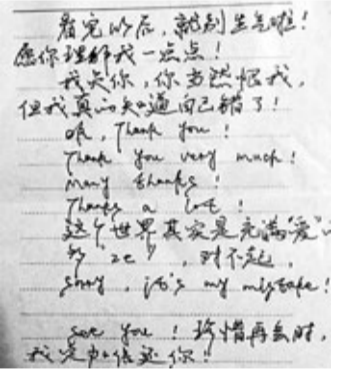 看完以后，就别生气啦！
愿你理解我一点点！
我失你，你当然恨我，
但我真的知道自己错了！
呐，Thank you！
Thank you very much！
Many thanks！
Thanks a lot！
这个世界其实是充满“爱”
的“ze”，对不起，
sorry，it's my mistake！
see you！珍惜再会时，
我定加倍还你！